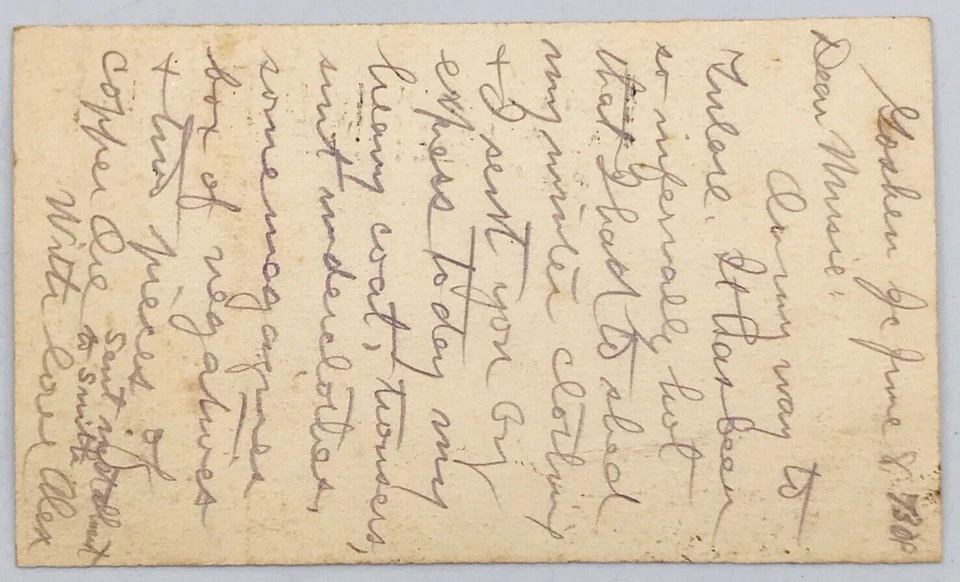 Goshen Jc June 8. 730P
Dear Musie:
On my way to
Tulare. It has been
so infernaly hot
that I had to shed
my winter clothing
+ I sent you by
express today my
heavy coat, trousers,
suit underclothes,
some magazines
box of negatives
+ two pieces of
copper Ore
sent installment
to Smith
With love Alex